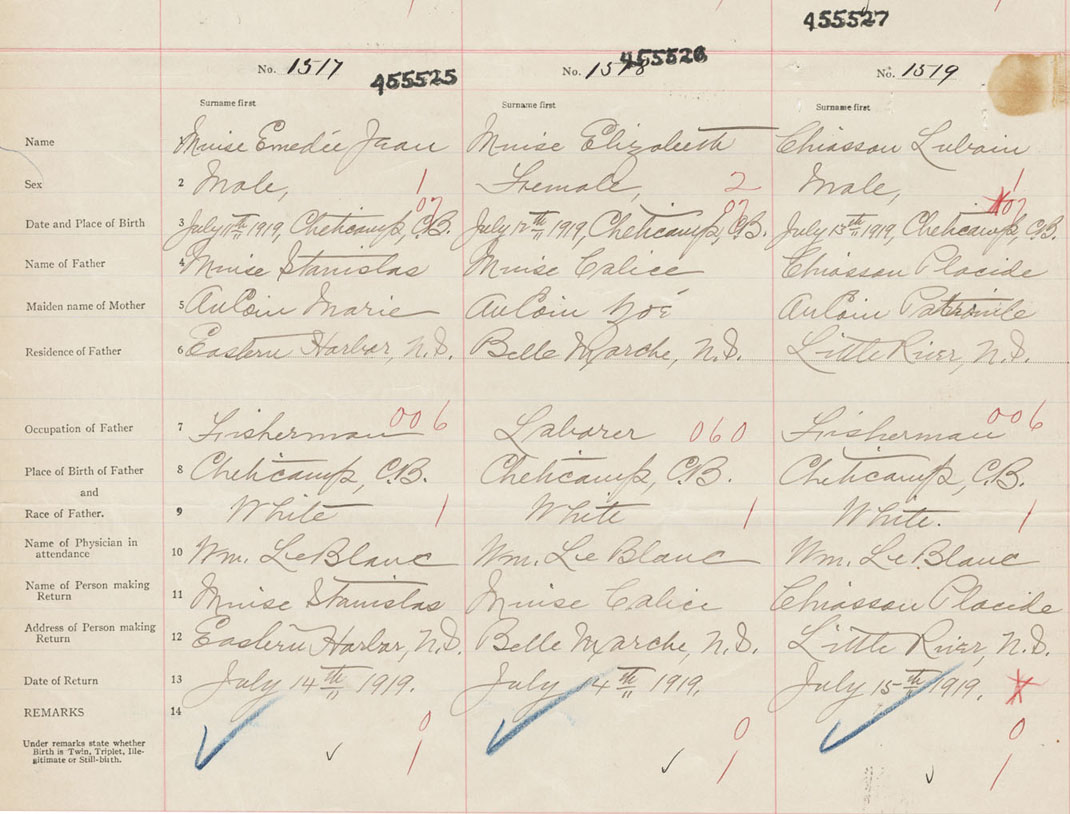 455527
No. 1517 455525 No. 1518 455526 No. 1519
Surname first Surname first Surname first
Name 1 Muise Emedée Jean Muise Elizabeth Chiasson Lubain
Sex 2 Male, 1 Female, 2 Male, 1
07 07 07
Date and Place of Birth 3 July 11th 1919, Cheticamp, C.B. July 12th 1919, Cheticamp, C.B. July 13th 1919, Cheticamp, C.B.
Name of Father 4 Muise Stanislas Muise Calice Chiasson Placide
Maiden name of Mother 5 AuCoin Marie AuCoin Zoé AuCoin Patronile
Residence of Father 6 Eastern Harbor, N.S. Belle Marche, N.S. Little River, N.S.
Occupation of Father 7 Fisherman 006 Laborer 060 Fisherman 006
Place of Birth of Father 8 Cheticamp, C.B. Cheticamp, C.B. Cheticamp, C.B.
and
Race of Father. 9 White 1 White 1 White. 1
Name of Physician in
attendance 10 Wm. LeBlanc Wm. LeBlanc Wm. LeBlanc
Name of Person making
Return 11 Muise Stanislas Muise Calice Chiasson Placide
Address of Person making
Return 12 Eastern Harbor, N.S. Belle Marche, N.S. Little River, N.S.
Date of Return 13 July 14th 1919. July 14th 1919. July 15th 1919.
REMARKS 14
0 0 0
Under remarks state whether
Birth is Twin, Triplet, Ille-
gitimate or Still-birth.
1 1 1